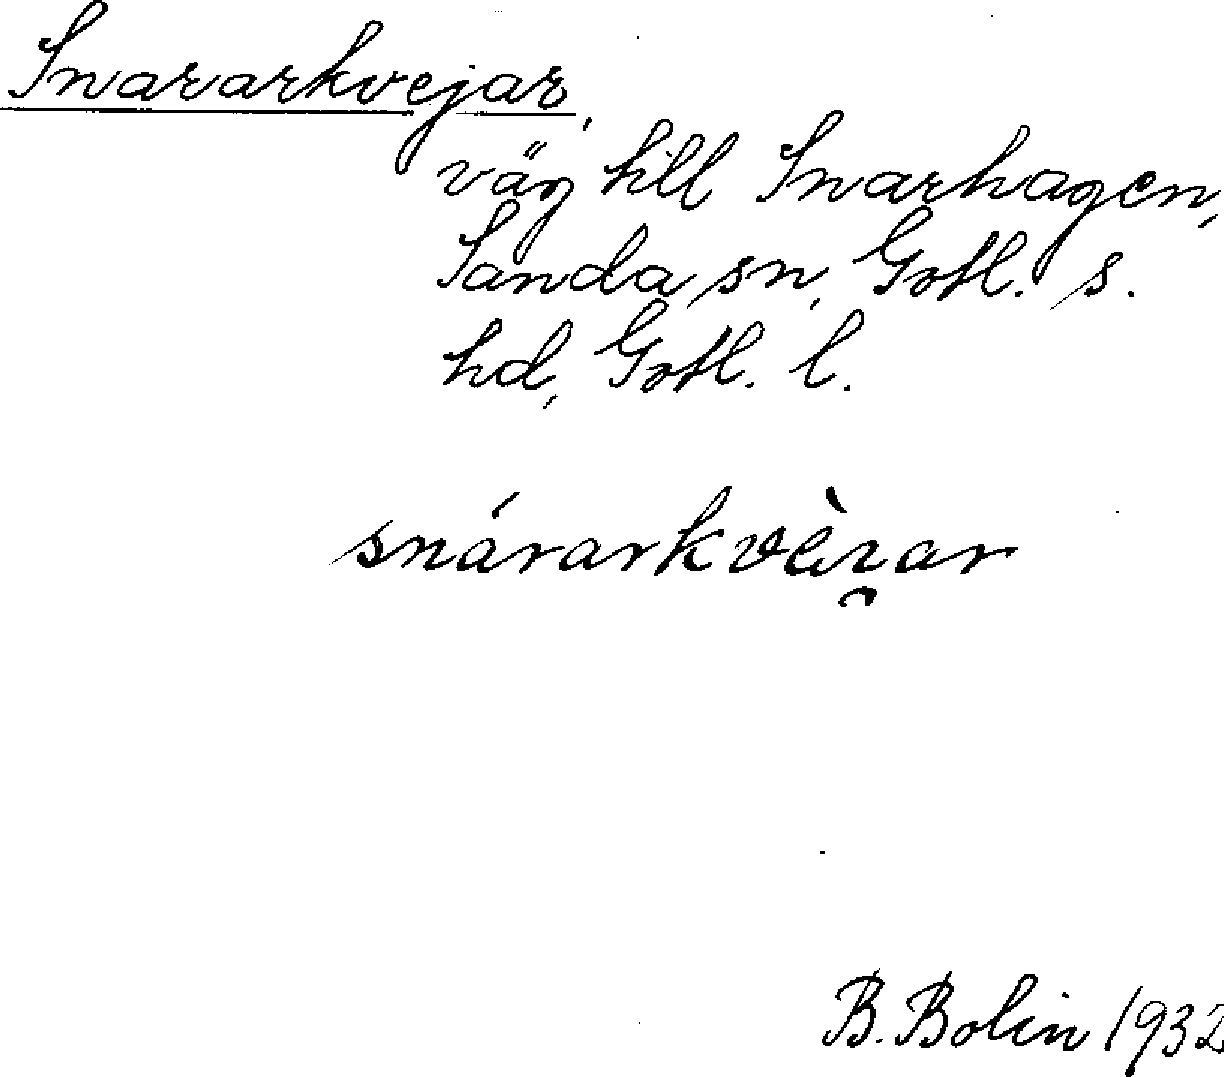 Snararkvejar,
väg till Snarhagen,
Sanda sn, Gotl. s.
hd, Gotl. l.
snárarkvèı̯ar
B. Bolin 1932